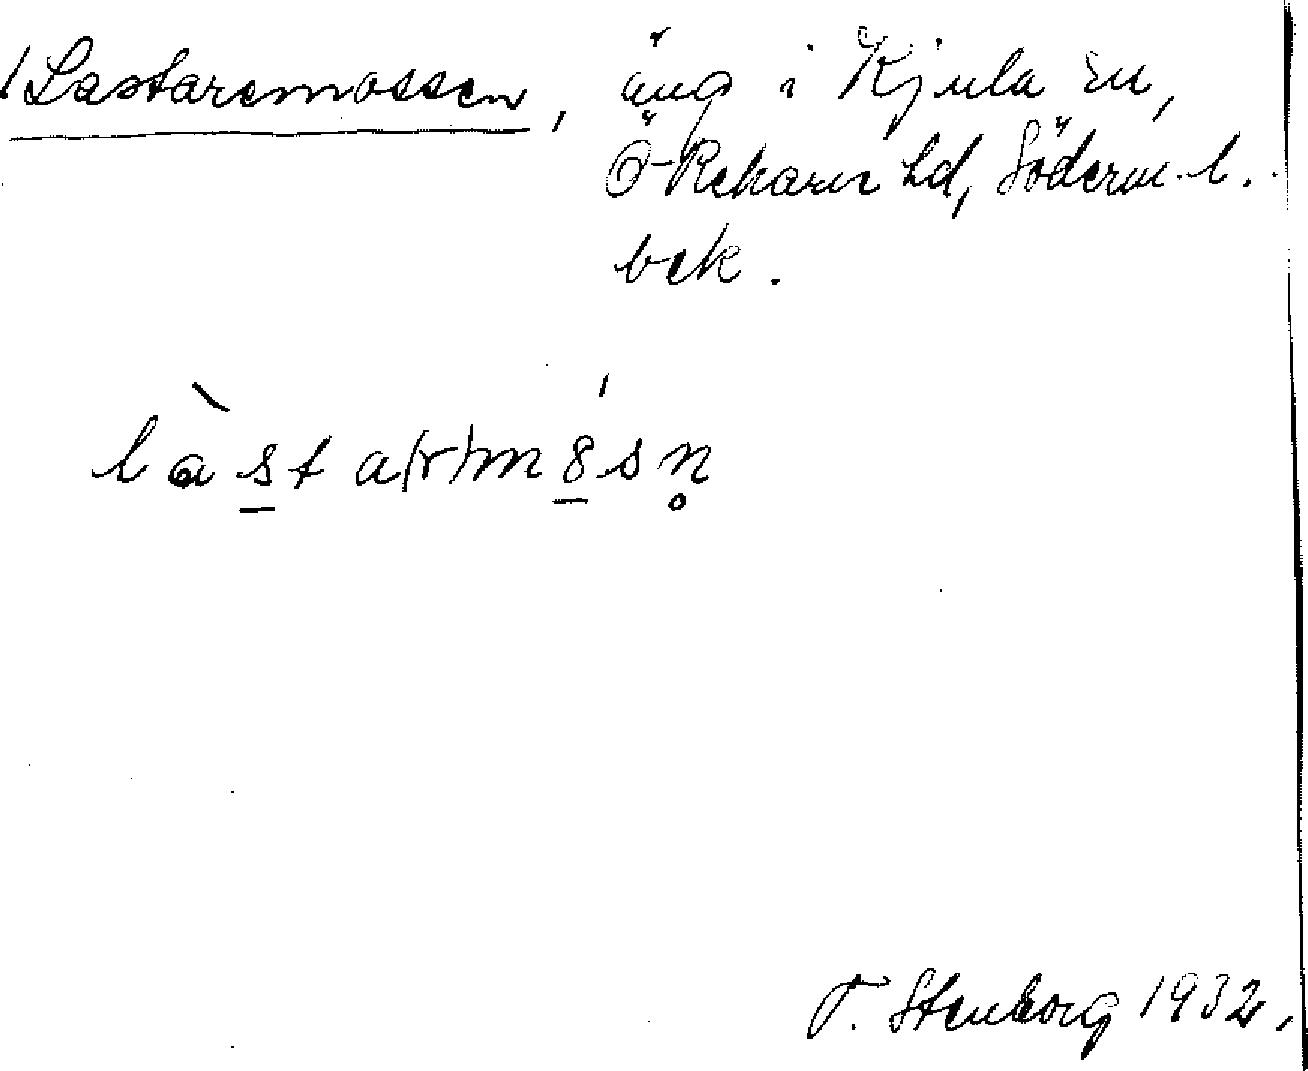 /Lastaremossen, äng i Kjula sn,
Ö-Rekarne hd, Söderm. l.
bek.
làsta(r)m8́sn̥
T. Stenborg 1932.